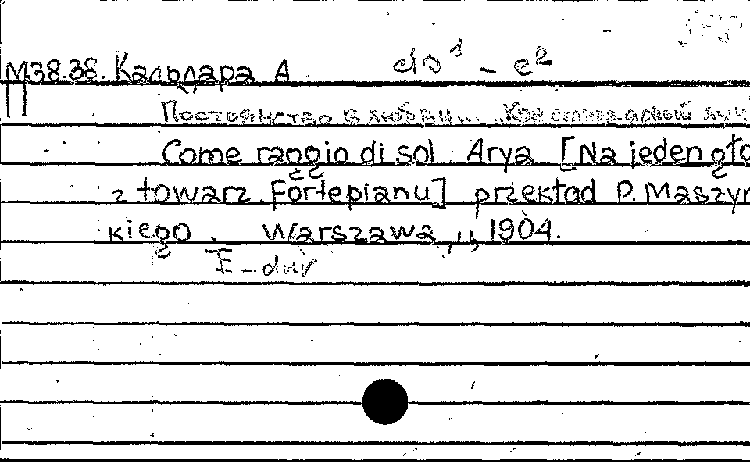 М38.38. Кальдара А cis¹ – e²
Постоянство в любви...
Come raggio di sol. Arya [Na jeden gło
z towarz. Fortepianu] przekład P. Maszyń
kiego. Warszawa, 1904.
E-dur